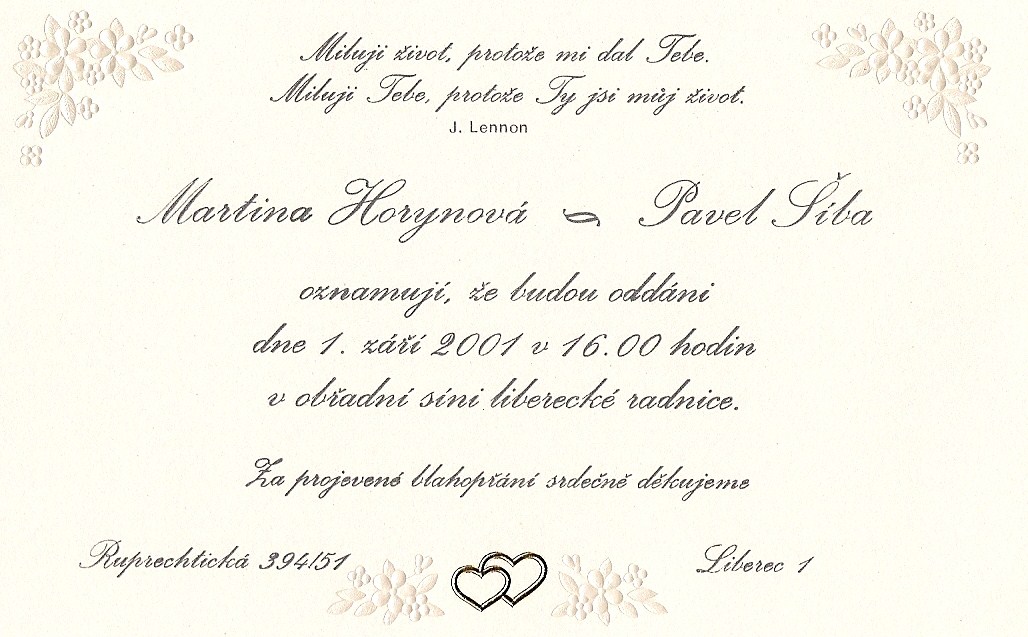 Miluji život, protože mi dal Tebe.
Miluji Tebe, protože Ty jsi můj život.
J. Lennon
Martina Horynová Pavel Šíba
oznamují, že budou oddáni
dne 1. září 2001 v 16.00 hodin
v obřadní síni liberecké radnice.
Za projevené blahopřání srdečně děkujeme
Ruprechtická 394/51 Liberec 1